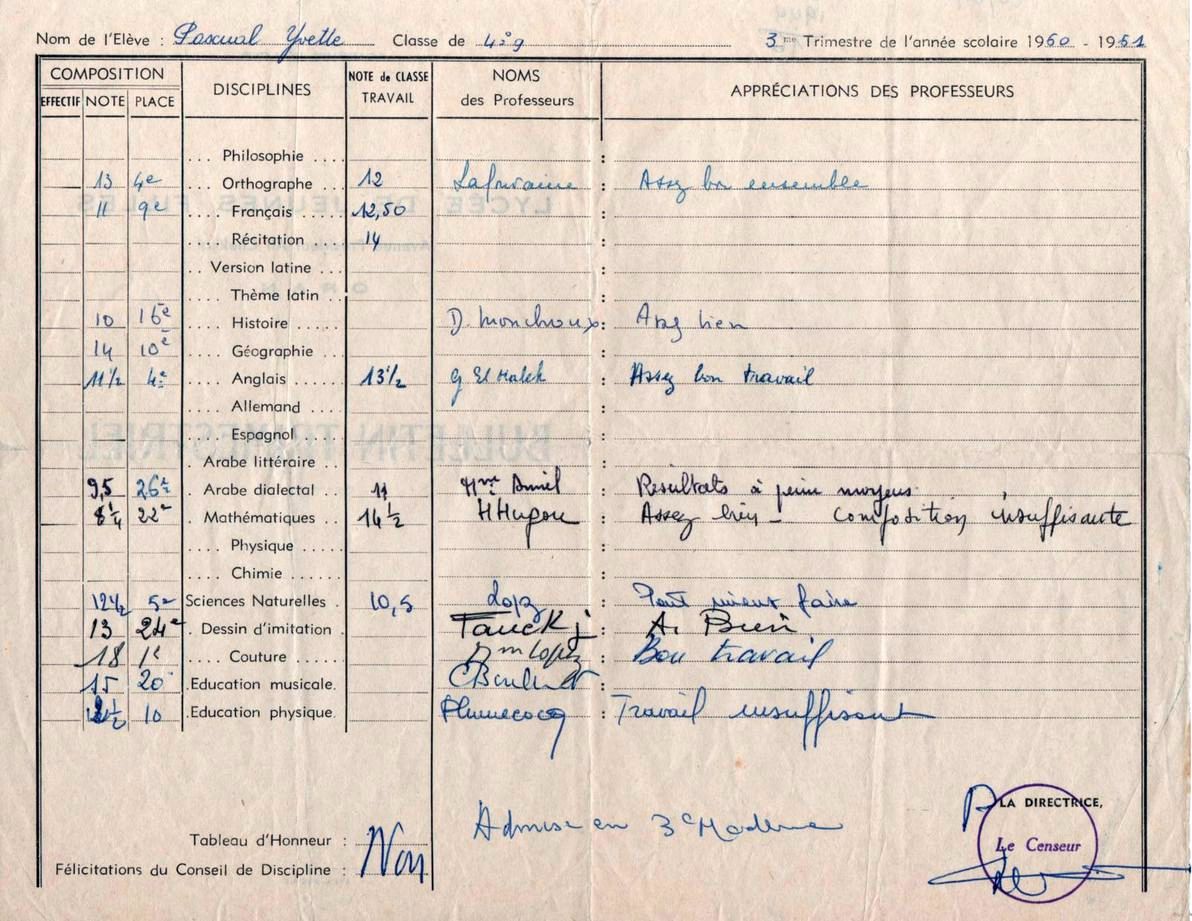 Nom de l'Elève : Pascual Yvette Classe de 4e g 3me Trimestre de l'année scolaire 1960 - 1961
COMPOSITION DISCIPLINES NOTE de CLASSE TRAVAIL NOMS des Professeurs APPRÉCIATIONS DES PROFESSEURS
EFFECTIF NOTE PLACE
Philosophie
13 4e Orthographe 12 Assez bon ensemble
11 9e Français 12,50
Récitation 14
Version latine
Thème latin
10 16e Histoire D. Monchoux Assez bien
14 10e Géographie
11 1/2 4e Anglais 13 1/2 G El Malek Assez bon travail
Allemand
Espagnol
Arabe littéraire
9,5 26e Arabe dialectal 11 Résultats à peine moyens
8 1/4 22e Mathématiques 14 1/2 H Hugou Assez bien - Composition insuffisante
Physique
Chimie
12 1/2 5e Sciences Naturelles 10,5 Lopez Peut mieux faire
13 24e Dessin d'imitation A. Bien
18 1e Couture Mm Lopez Bon travail
15 20 Education musicale.
10 Education physique. Travail insuffisant
Admise en 3e Moderne
LA DIRECTRICE,
Le Censeur
Tableau d'Honneur : Non
Félicitations du Conseil de Discipline :
LYCÉE DE JEUNES FILLES
ORAN
BULLETIN TRIMESTRIEL